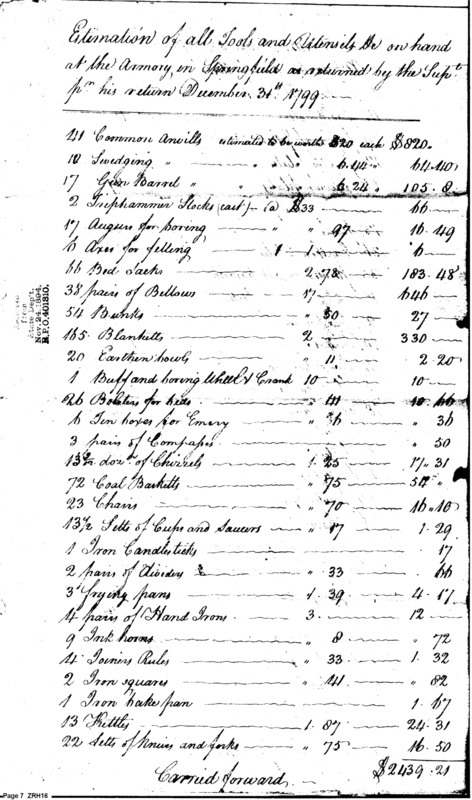 Estimation of all Tools and Utensils &c on hand
at the Armory in Springfield as returned by the Supt
pr his return December 31st 1799
41 Common Anvills estimated to be worth $20 each $820.
10 Swedging " " " 6.44 " 64.40
17 Gun Barrel " " " 6.24 " 105.8
2 Triphammer Stocks (cast) - @ $33 66
17 Augurs for boring " 97 16.49
6 Axes for felling 1 6
66 Bed Sacks 2.78 183.48
38 pairs of Bellows 17 646
54 Bunks " 50 27
165 Blanketts 2 330
20 Earthen bowls " 11 2.20
1 Buff and boring Wheel & Crank 10 10
26 Bolsters for beds " 41 10.66
6 Tin boxes for Emery " 6 " 36
3 pairs of Compasses " 50
13 doz of Chizzels 1.25 17.31
72 Coal Basketts " 75 54 "
23 Chairs " 70 16.10
13½ Setts of Cups and Saucers " 17 1.29
1 Iron Candlesticks 17
2 pairs of dividers " 33 66
3 frying pans 1.39 4.17
4 pairs of Hand Irons 3 12
9 Ink horns " 8 " 72
4 Joiners Rules " 33 1.32
2 Iron squares " 41 " 82
1 Iron bake pan 1.67
13 Kettles 1.87 24.31
22 Setts of knives and forks " 75 16.50
Carried forward $2439.21
Received
from
State Dep't.
Nov. 24, 1894.
R.P.O. 401810.
Page 7 ZRH16